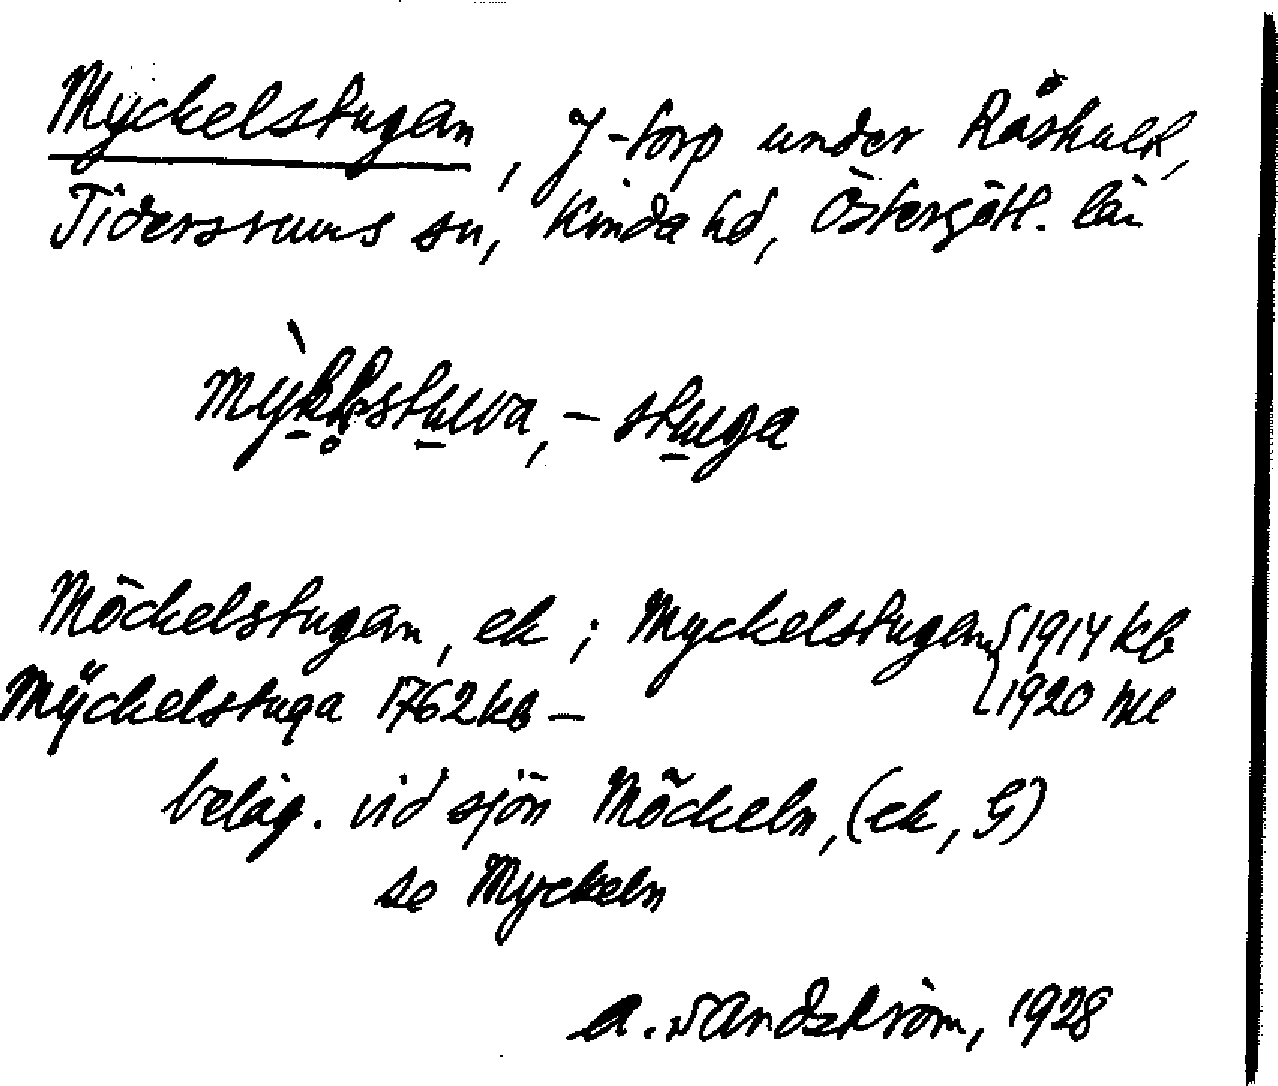 Myckelstugan, J-torp under Råshult,
Tidersrums sn, Kinda hd, Östergötl. län
Möckelstugan, ek; Myckelstugan {1914 kb
Mÿckelstuga 1762 kb – 1920 ml
beläg. vid sjön Möckeln, (ek, G)
se Myckeln
A. Sandström, 1928